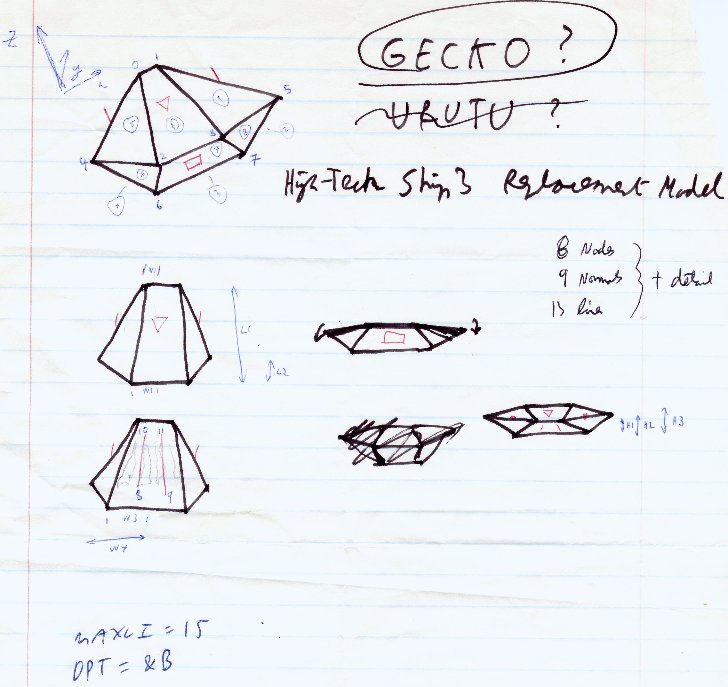 GECKO ?
URUTU ?
High-Tech Ship 3 Replacement Model
Z
y
x
0 1
5
4 2 3 7
6
8 Nodes
9 Normals + detail
15 line
W1
L1
L2
W2
H1 H2 H3
8 9
W3
W4
MAXLI = 15
DPT = &B